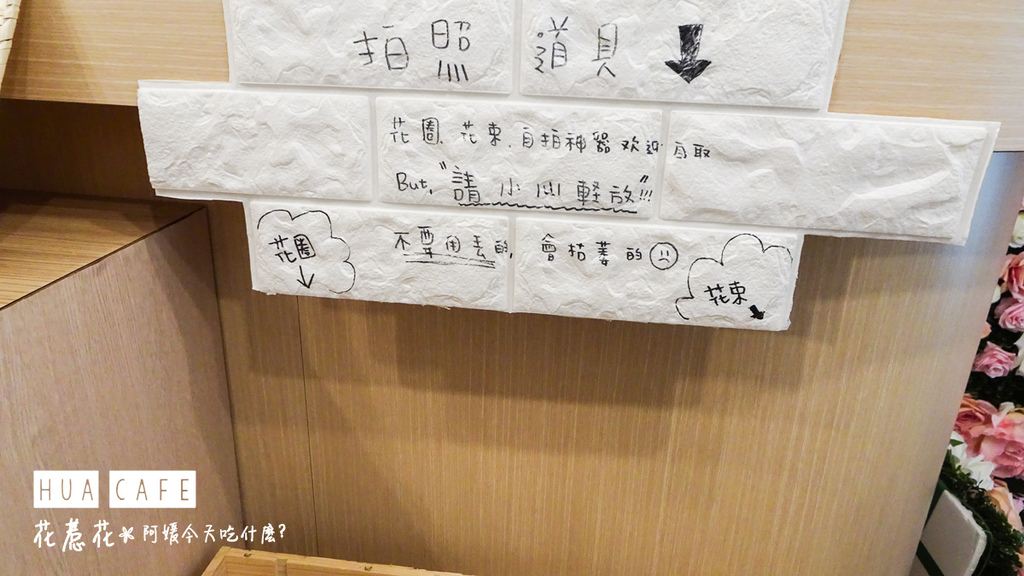 拍照道具
花圈、花束、自拍神器欢迎自取
But, "請小心輕放"!!!
不要用丟的, 會枯萎的
花圈
花束
HUA CAFE
花薏花 阿嬛今天吃什麼?